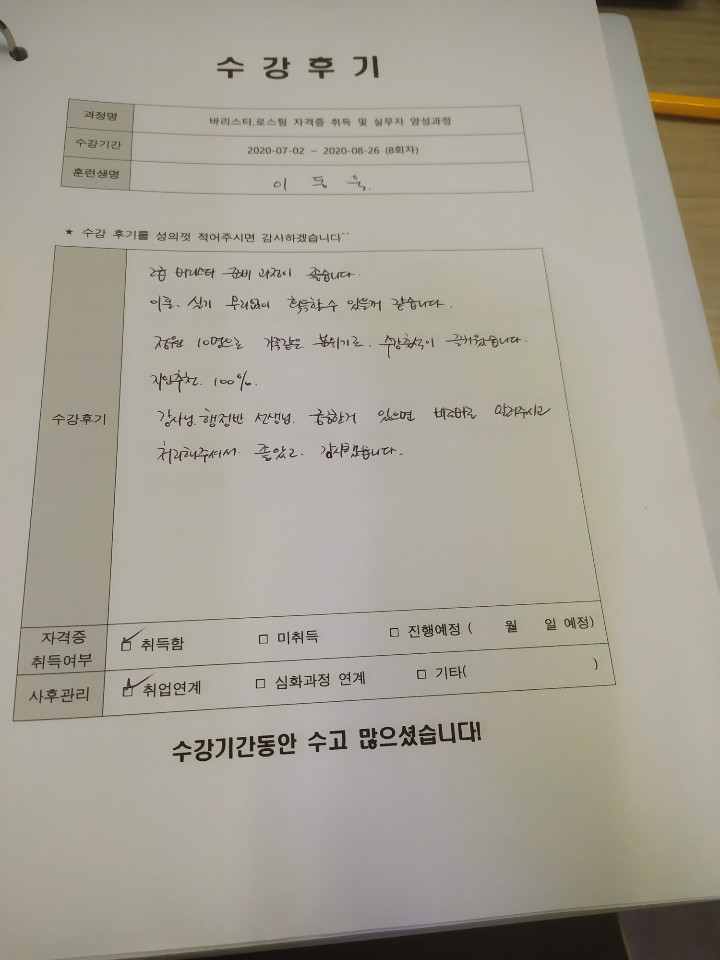 수강후기
과정명 바리스타,로스팅 자격증 취득 및 실무자 양성과정
수강기간 2020-07-02 ~ 2020-08-26 (8회차)
훈련생명 이 동 욱.
★ 수강 후기를 성의껏 적어주시면 감사하겠습니다^^
2급 바리스타 준비 과정이 좋습니다.
이론. 실기 무리없이 획득할수 있을꺼 같습니다.
정원 10명으로 가족같은 분위기로. 수강출석이 즐거웠습니다.
지인추천. 100%.
수강후기
강사님. 행정반 선생님. 궁금한거 있으면 바로바로 알려주시고
처리해주셔서 좋았고. 감사했습니다.
자격증 취득여부 취득함 미취득 진행예정 ( 월 일 예정)
사후관리 취업연계 심화과정 연계 기타( )
수강기간동안 수고 많으셨습니다!